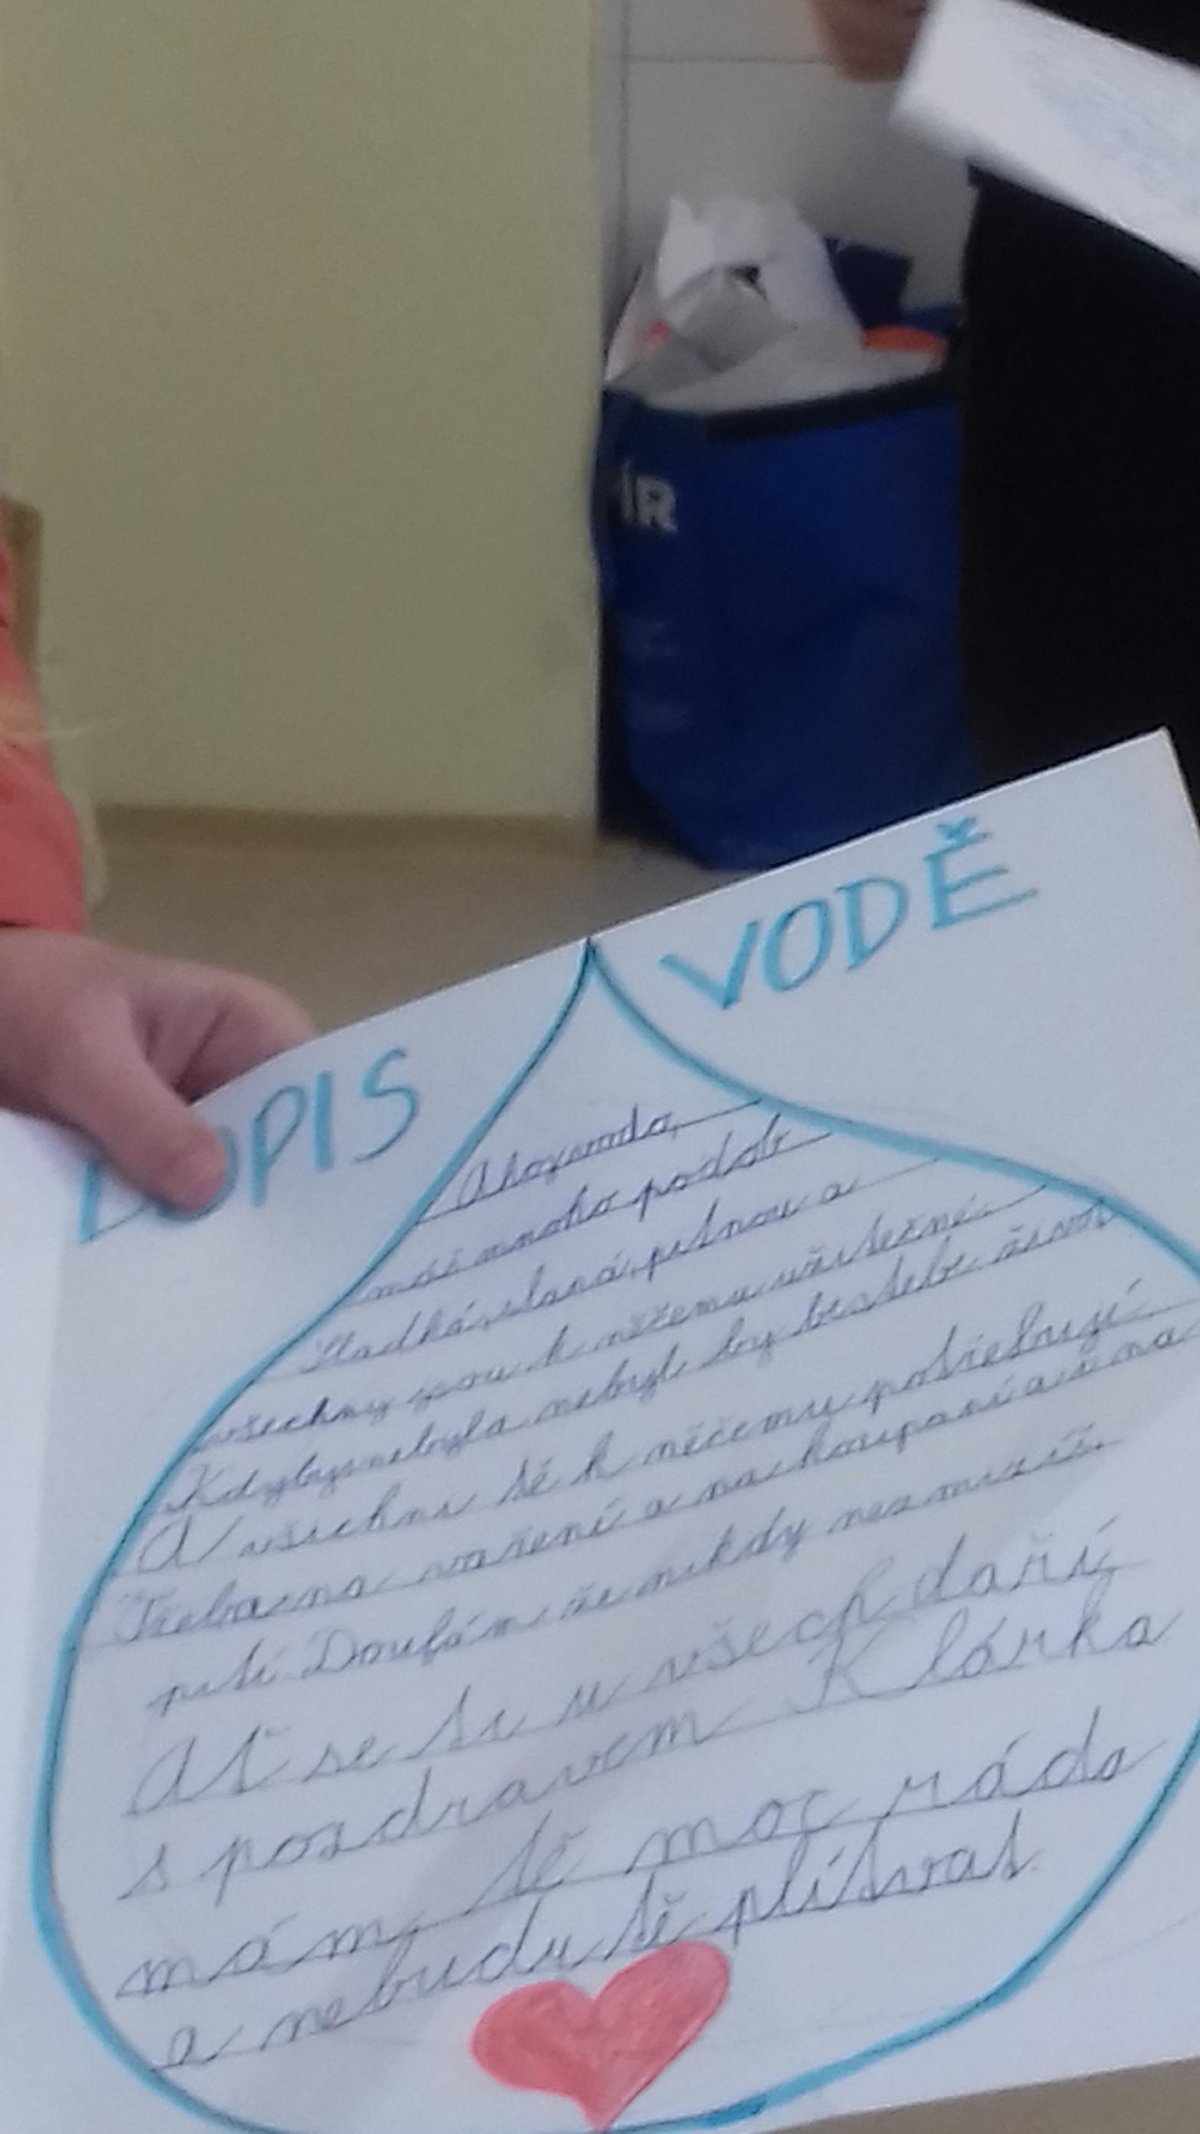 ÍR
DOPIS VODĚ
Ahoj vodo,
máš mnoho podob
Sladká, slaná, pitnou a
všechny jsou k něčemu užitečné.
Kdybys nebyla nebyl by bez tebe život
A všichni tě k něčemu potřebují
Třeba na vaření a na koupání a i na
pití Doufám že nikdy nezmizíš.
Ať se ti u všech daří
s pozdravem Klárka
mám tě moc ráda
a nebudu tě plítvat.